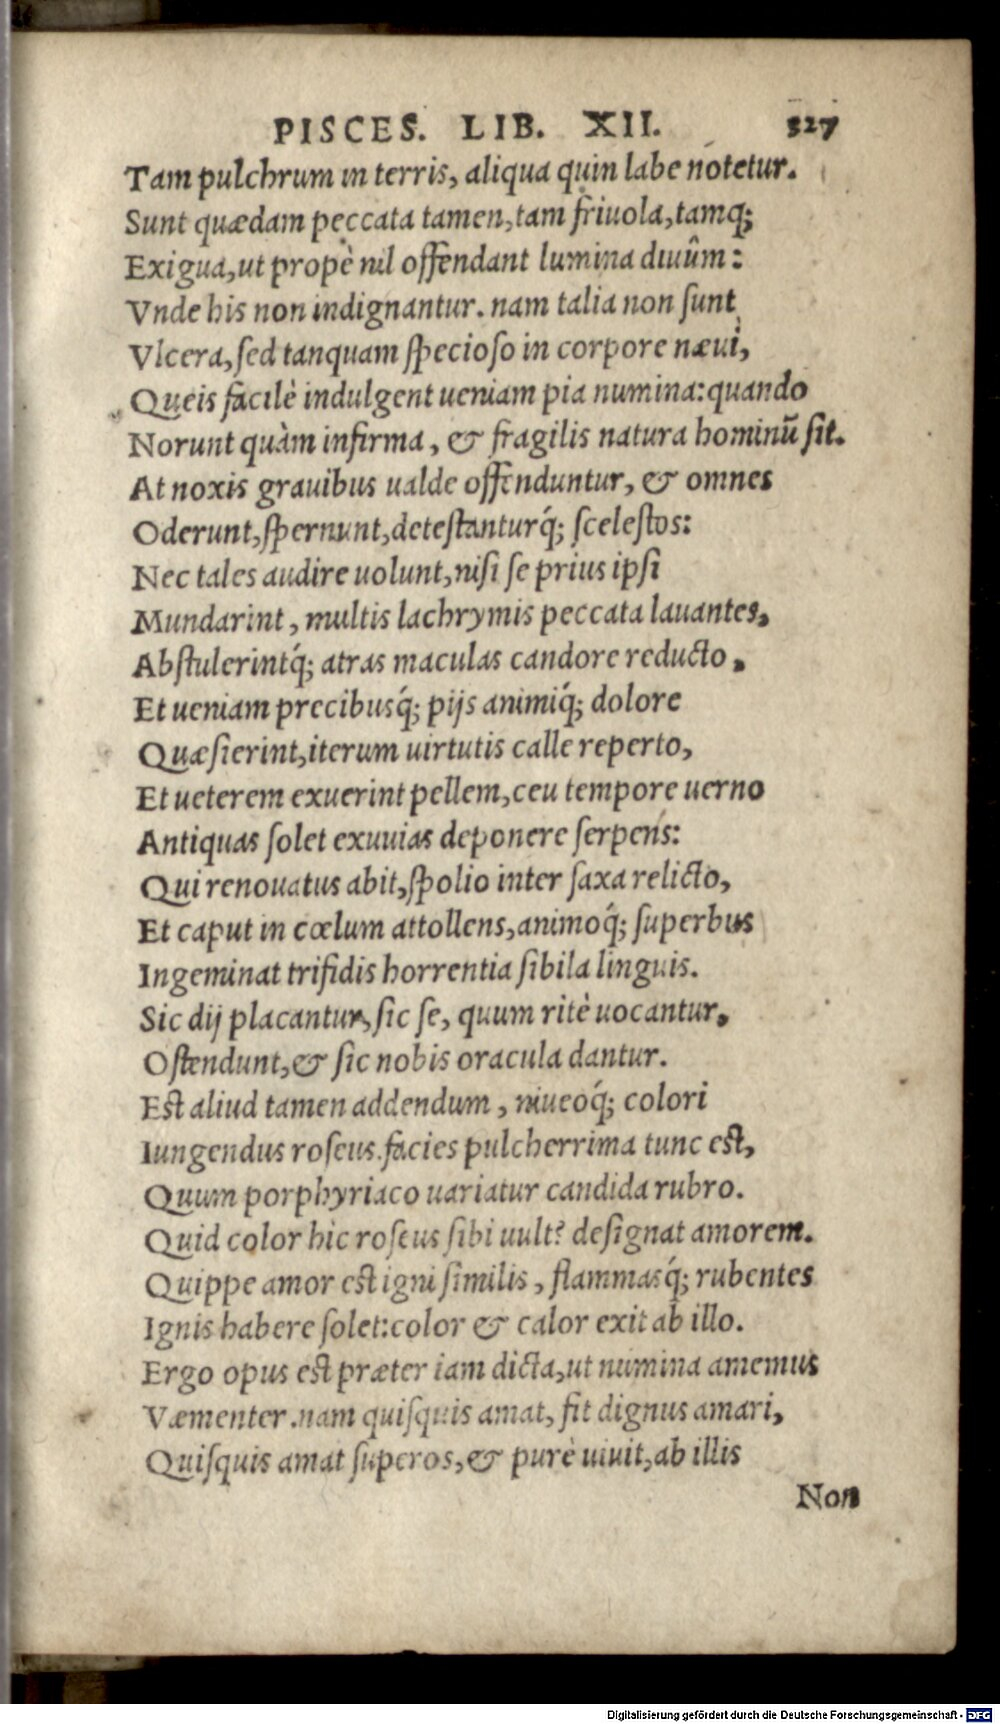 PISCES. LIB. XII. 327
Tam pulchrum in terris, aliqua quin labe notetur.
Sunt quædam peccata tamen, tam friuola, tamq;
Exigua, ut propè nil offendant lumina diuûm:
Vnde his non indignantur. nam talia non sunt
Vlcera, sed tanquam specioso in corpore næui,
Queis facilè indulgent ueniam pia numina: quando
Norunt quàm infirma, & fragilis natura hominū sit.
At noxis grauibus ualde offenduntur, & omnes
Oderunt, spernunt, detestanturq́; scelestos:
Nec tales audire uolunt, nisi se prius ipsi
Mundarint, multis lachrymis peccata lauantes,
Abstulerintq́; atras maculas candore reducto,
Et ueniam precibusq́; pijs animiq́; dolore
Quæsierint, iterum uirtutis calle reperto,
Et ueterem exuerint pellem, ceu tempore uerno
Antiquas solet exuuias deponere serpens:
Qui renouatus abit, spolio inter saxa relicto,
Et caput in cœlum attollens, animoq́; superbus
Ingeminat trifidis horrentia sibila linguis.
Sic dij placantur, sic se, quum ritè uocantur,
Ostendunt, & sic nobis oracula dantur.
Est aliud tamen addendum, niueoq́; colori
Iungendus roseus. facies pulcherrima tunc est,
Quum porphyriaco uariatur candida rubro.
Quid color hic roseus sibi uult? designat amorem.
Quippe amor est igni similis, flammasq́; rubentes
Ignis habere solet: color & calor exit ab illo.
Ergo opus est præter iam dicta, ut numina amemus
Væmenter. nam quisquis amat, fit dignus amari,
Quisquis amat superos, & purè uiuit, ab illis
Non
Digitalisierung gefördert durch die Deutsche Forschungsgemeinschaft - DFG